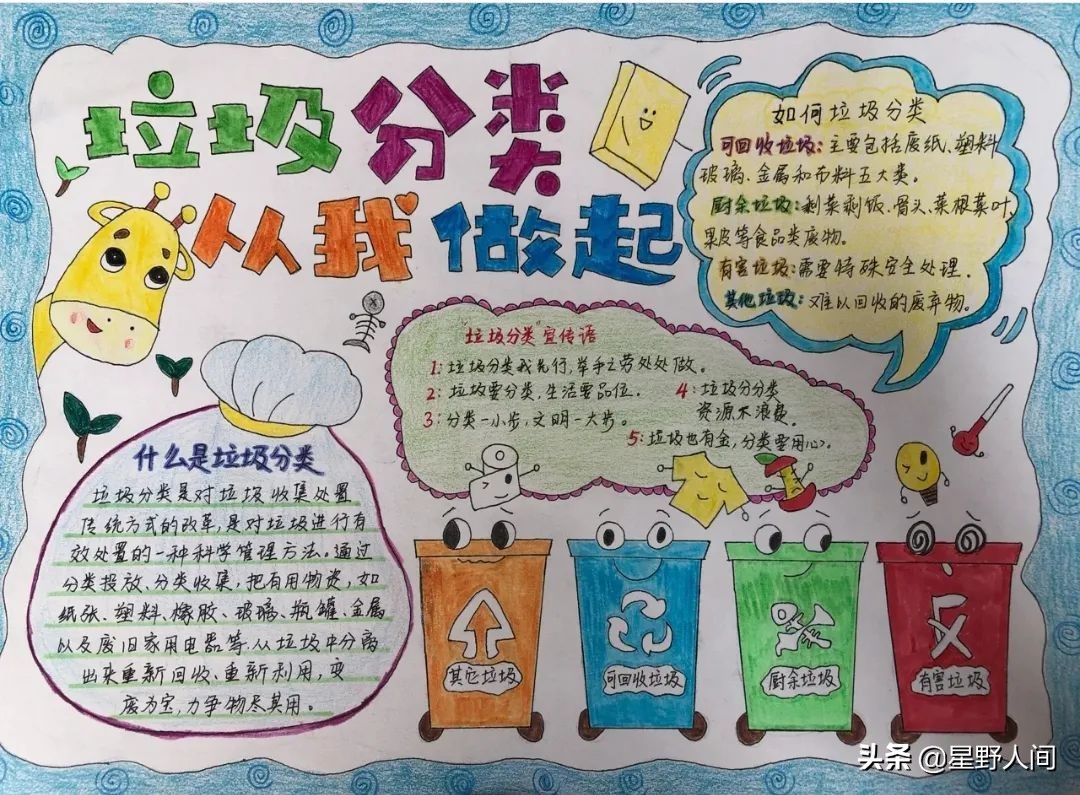 垃圾分类
从我做起
如何垃圾分类
可回收垃圾:主要包括废纸、塑料
玻璃、金属和布料五大类。
厨余垃圾:剩菜剩饭、骨头、菜根菜叶、
果皮等食品类废物。
有害垃圾:需要特殊安全处理.
其他垃圾:难以回收的废弃物。
"垃圾分类"宣传语
1:垃圾分类我先行,举手之劳处处做。
2:垃圾要分类,生活要品位.
3:分类一小步,文明一大步。
4:垃圾分分类
资源不浪费。
5:垃圾也有金,分类要用心。
什么是垃圾分类
垃圾分类是对垃圾收集处置
传统方式的改革,是对垃圾进行有
效处置的一种科学管理方法。通过
分类投放、分类收集,把有用物资,如
纸张、塑料、橡胶、玻璃、瓶罐、金属
以及废旧家用电器等.从垃圾中分离
出来重新回收、重新利用,变
废为宝,力争物尽其用。
其它垃圾
可回收垃圾
厨余垃圾
有害垃圾
头条@星野人间